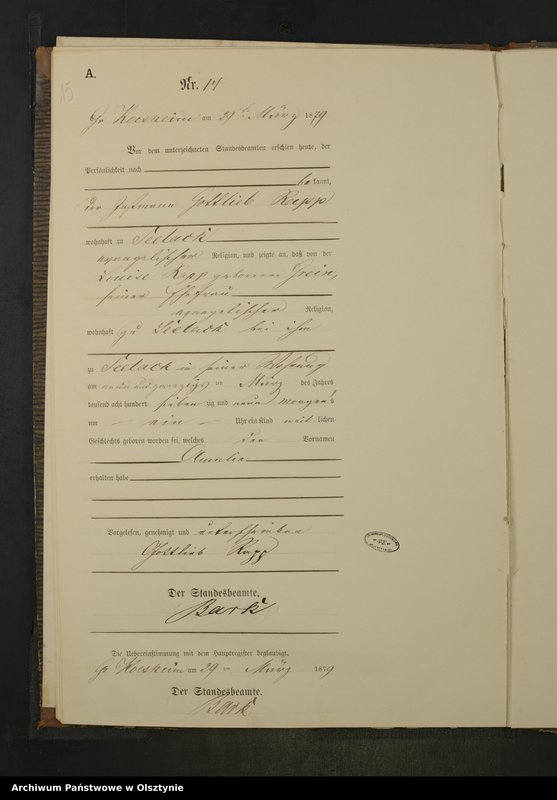 A.
15
Nr. 14
Gr Koersheim am 29ten März 1879
Vor dem unterzeichneten Standesbeamten erschien heute, der
Persönlichkeit nach
bekannt,
der Gottlieb Kapp
wohnhaft zu Seelack
evangelischer Religion, und zeigte an, daß von der
Louise Kapp geborenen Grein,
seiner Ehefrau
evangelischer Religion,
wohnhaft zu Seelack bei ihm
zu Seelack in seiner Wohnung
am neun und zwanzigsten März des Jahres
tausend acht hundert sieben zig und neun morgens
um ein Uhr ein Kind weiblichen
Geschlechts geboren worden sei, welches den Vornamen
Amalie
erhalten habe
Vorgelesen, genehmigt und unterschrieben
Gottlieb Kapp
Der Standesbeamte.
Bark
Die Uebereinstimmung mit dem Hauptregister beglaubigt.
Gr Koersheim am 29ten März 1879
Der Standesbeamte.
Bark
Archiwum Państwowe w Olsztynie